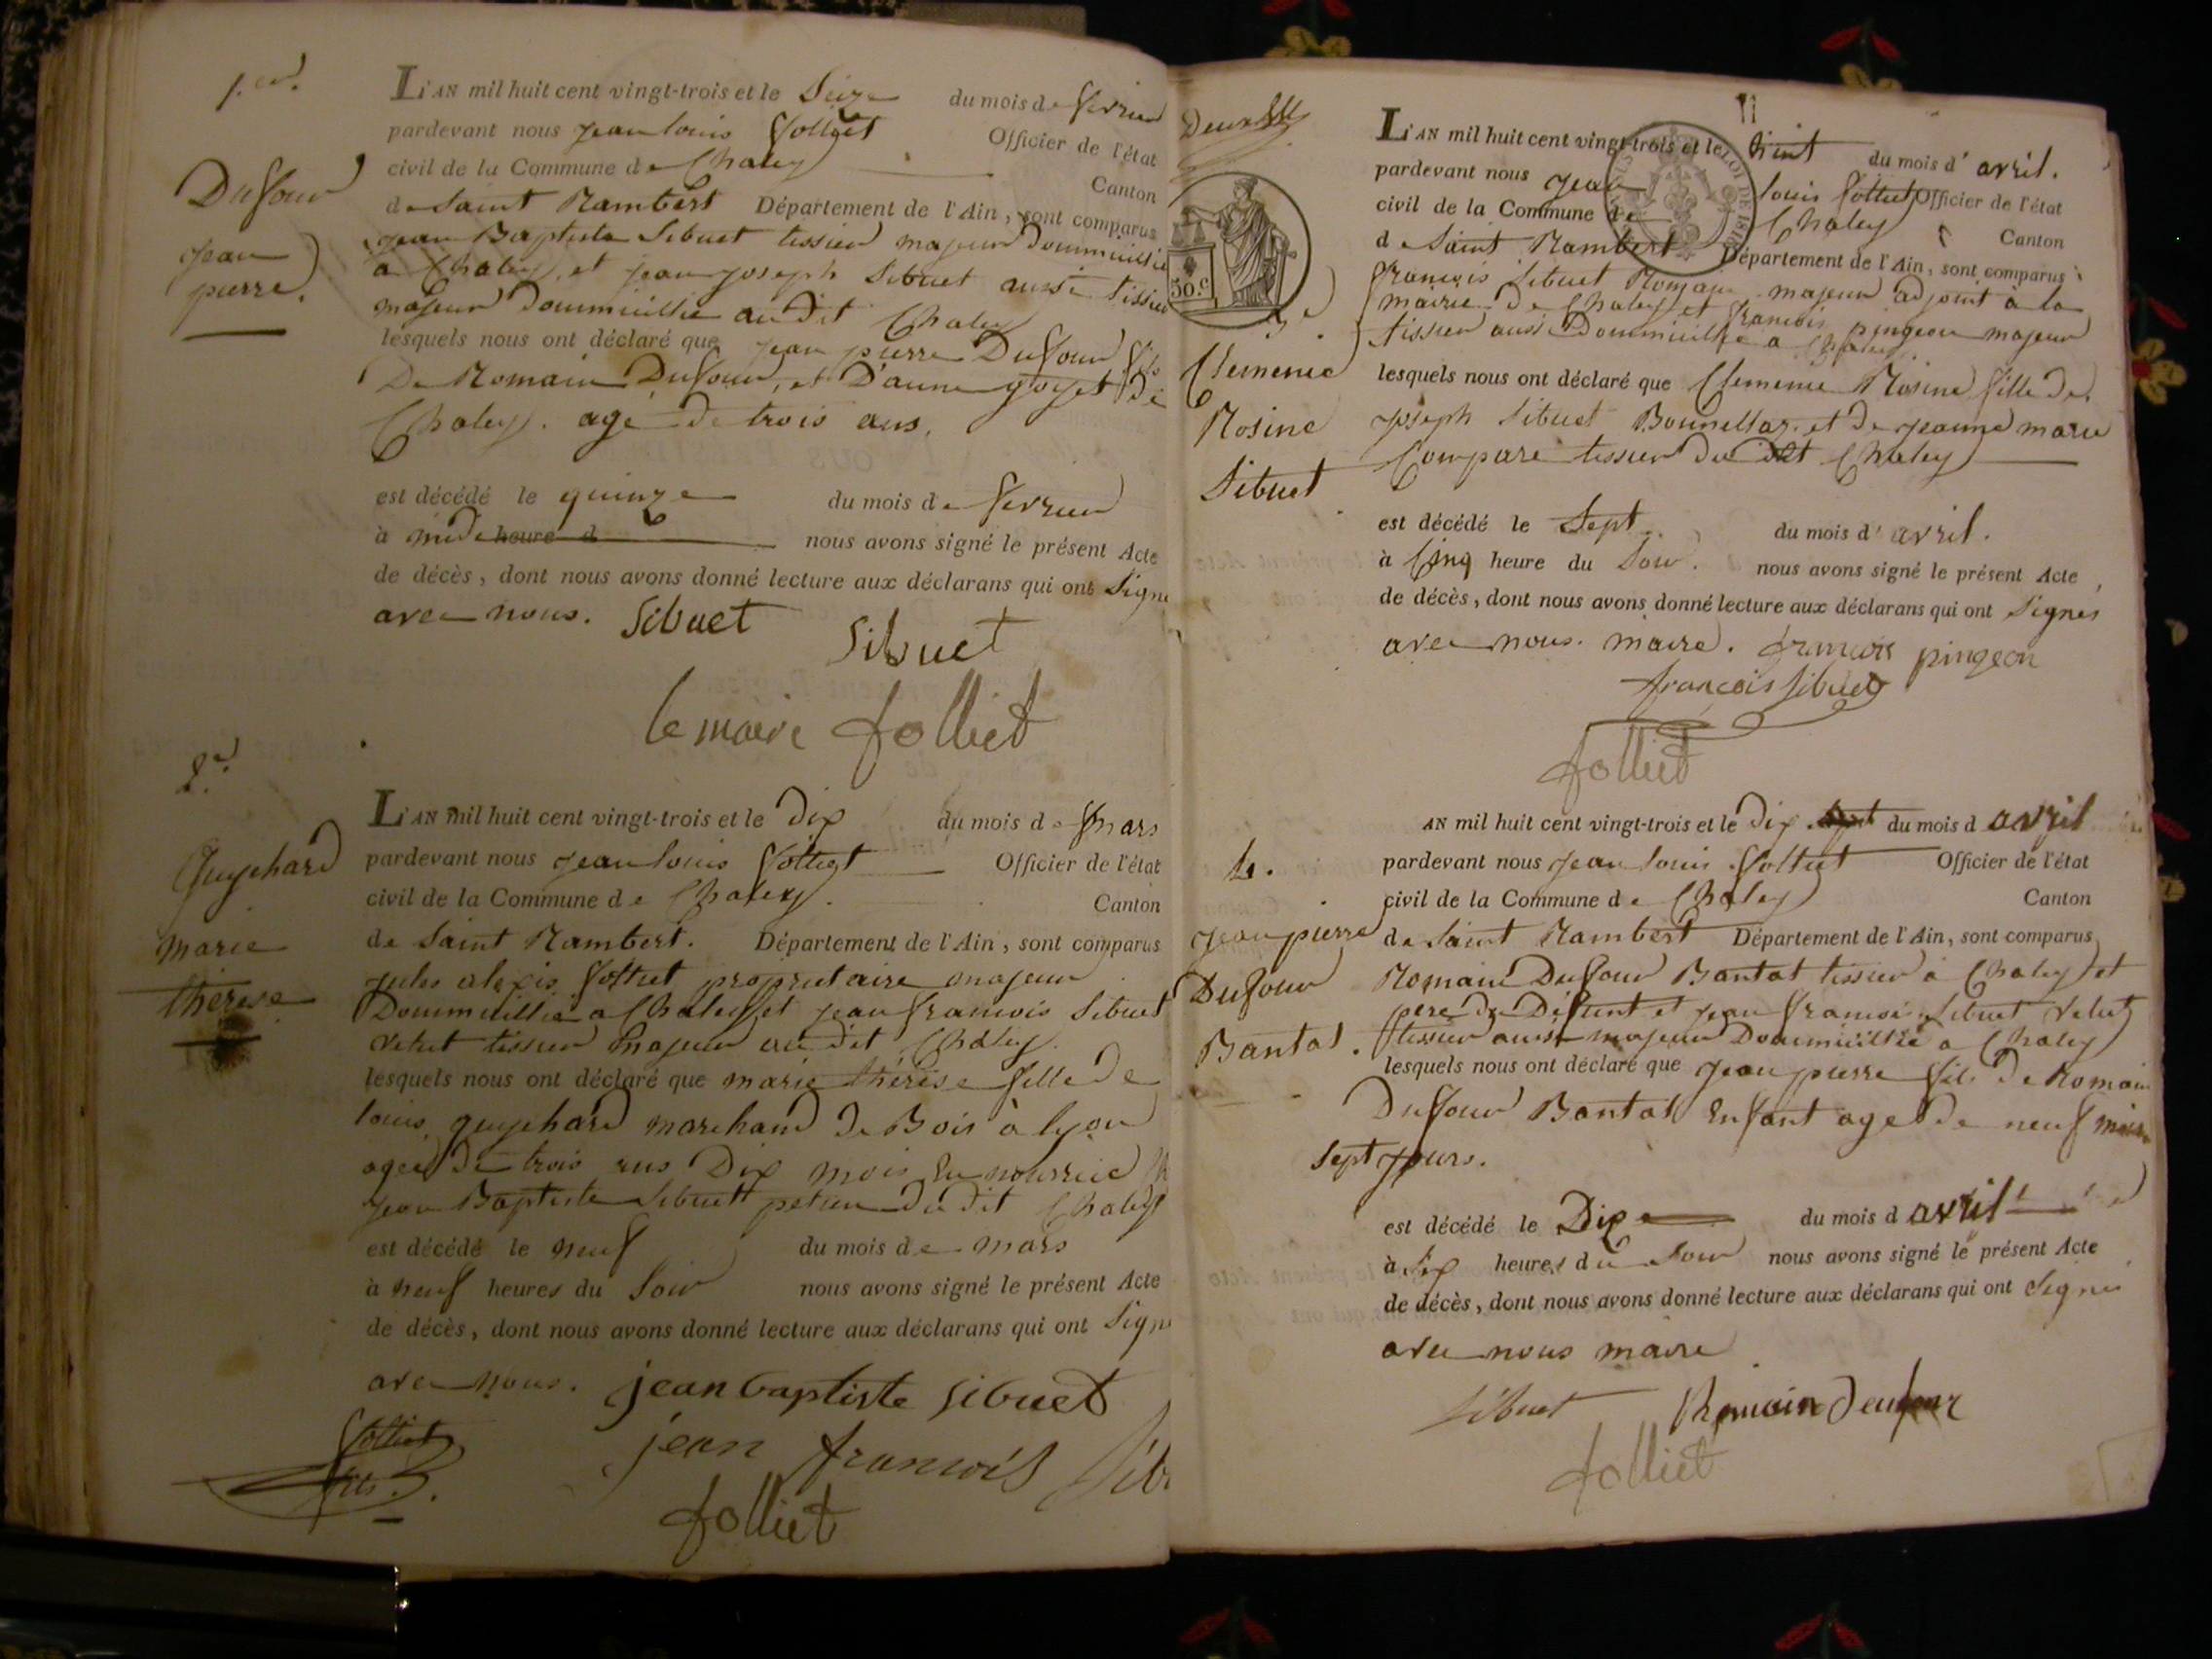 1.er
Dufour
jean
pierre.
L'AN mil huit cent vingt-trois et le Seize du mois de fevrier
pardevant nous jean louis folliet Officier de l'état
civil de la Commune de Chaley Canton
de Saint Rambert Département de l'Ain, sont comparus
jean Baptiste Sibuet tissier majeur Doumicillié
a Chaley, et jean joseph Sibuet aussi tissier
majeur Doumicillié au dit Chaley
lesquels nous ont déclaré que jean pierre Dufour fils
De Romain Dufour, et D'anne goyet De
Chaley. agé de trois ans.
est décédé le quinze du mois de fevrier
à midi heure d nous avons signé le présent Acte
de décès, dont nous avons donné lecture aux déclarans qui ont Signé
avec nous. Sibuet
Sibuet
le maire folliet
2.
Guychard
marie
thérèse
L'AN mil huit cent vingt-trois et le Dix du mois de Mars
pardevant nous jean louis folliet Officier de l'état
civil de la Commune de Chaley. Canton
de Saint Rambert. Département de l'Ain, sont comparus
jules alexis folliet proprietaire majeur
Doummicillié a Chaley et jean francois Sibuet
tissier majeur au dit Chaley.
lesquels nous ont déclaré que marie thérèse fille de
louis guychard marchand de Bois à lyon
agee de trois ans Dix mois En nourrice
jean Baptiste Sibuett du dit Chaley
est décédé le neuf du mois de mars
à neuf heures du Soir nous avons signé le présent Acte
de décès, dont nous avons donné lecture aux déclarans qui ont Signé
avec nous. jean baptiste Sibuet
folliet
fils.
jean francois Sibu
folliet
50.c
LOI DE 1816
3.e
Clemence
Rosine
Sibuet
L'AN mil huit cent vingt-trois et le huit du mois d'avril.
pardevant nous jean louis folliet Officier de l'état
civil de la Commune de Chaley Canton
de Saint Rambert Département de l'Ain, sont comparus
francois Sibuet Romain majeur adjoint à la
mairie de Chaley et francois pingeon majeur
tissier aussi Doummicillié a Chaley
lesquels nous ont déclaré que Clemence Rosine fille de
joseph Sibuet et De jeanne marie
Compare tissier du dit Chaley
est décédé le Sept du mois d'avril.
à Cinq heure du Soir. nous avons signé le présent Acte
de décès, dont nous avons donné lecture aux déclarans qui ont Signés
avec nous. maire. francois pingeon
françois Sibuet
folliet
4.
jean pierre
Dufour
Bantat.
AN mil huit cent vingt-trois et le Dix du mois d avril
pardevant nous jean louis folliet Officier de l'état
civil de la Commune de Chaley Canton
de Saint Rambert Département de l'Ain, sont comparus
Romain Dufour Bantat tissier à Chaley et
pere du Défunt et jean francois Sibuet
tissier aussi majeur Doummicillié a Chaley
lesquels nous ont déclaré que jean pierre fils de Romain
Dufour Bantat Enfant agé de neuf mois
Sept jours.
est décédé le Dix du mois d avril
à Six heures du Soir nous avons signé le présent Acte
de décès, dont nous avons donné lecture aux déclarans qui ont Signé
avec nous maire
Sibuet Romain Deufour
folliet